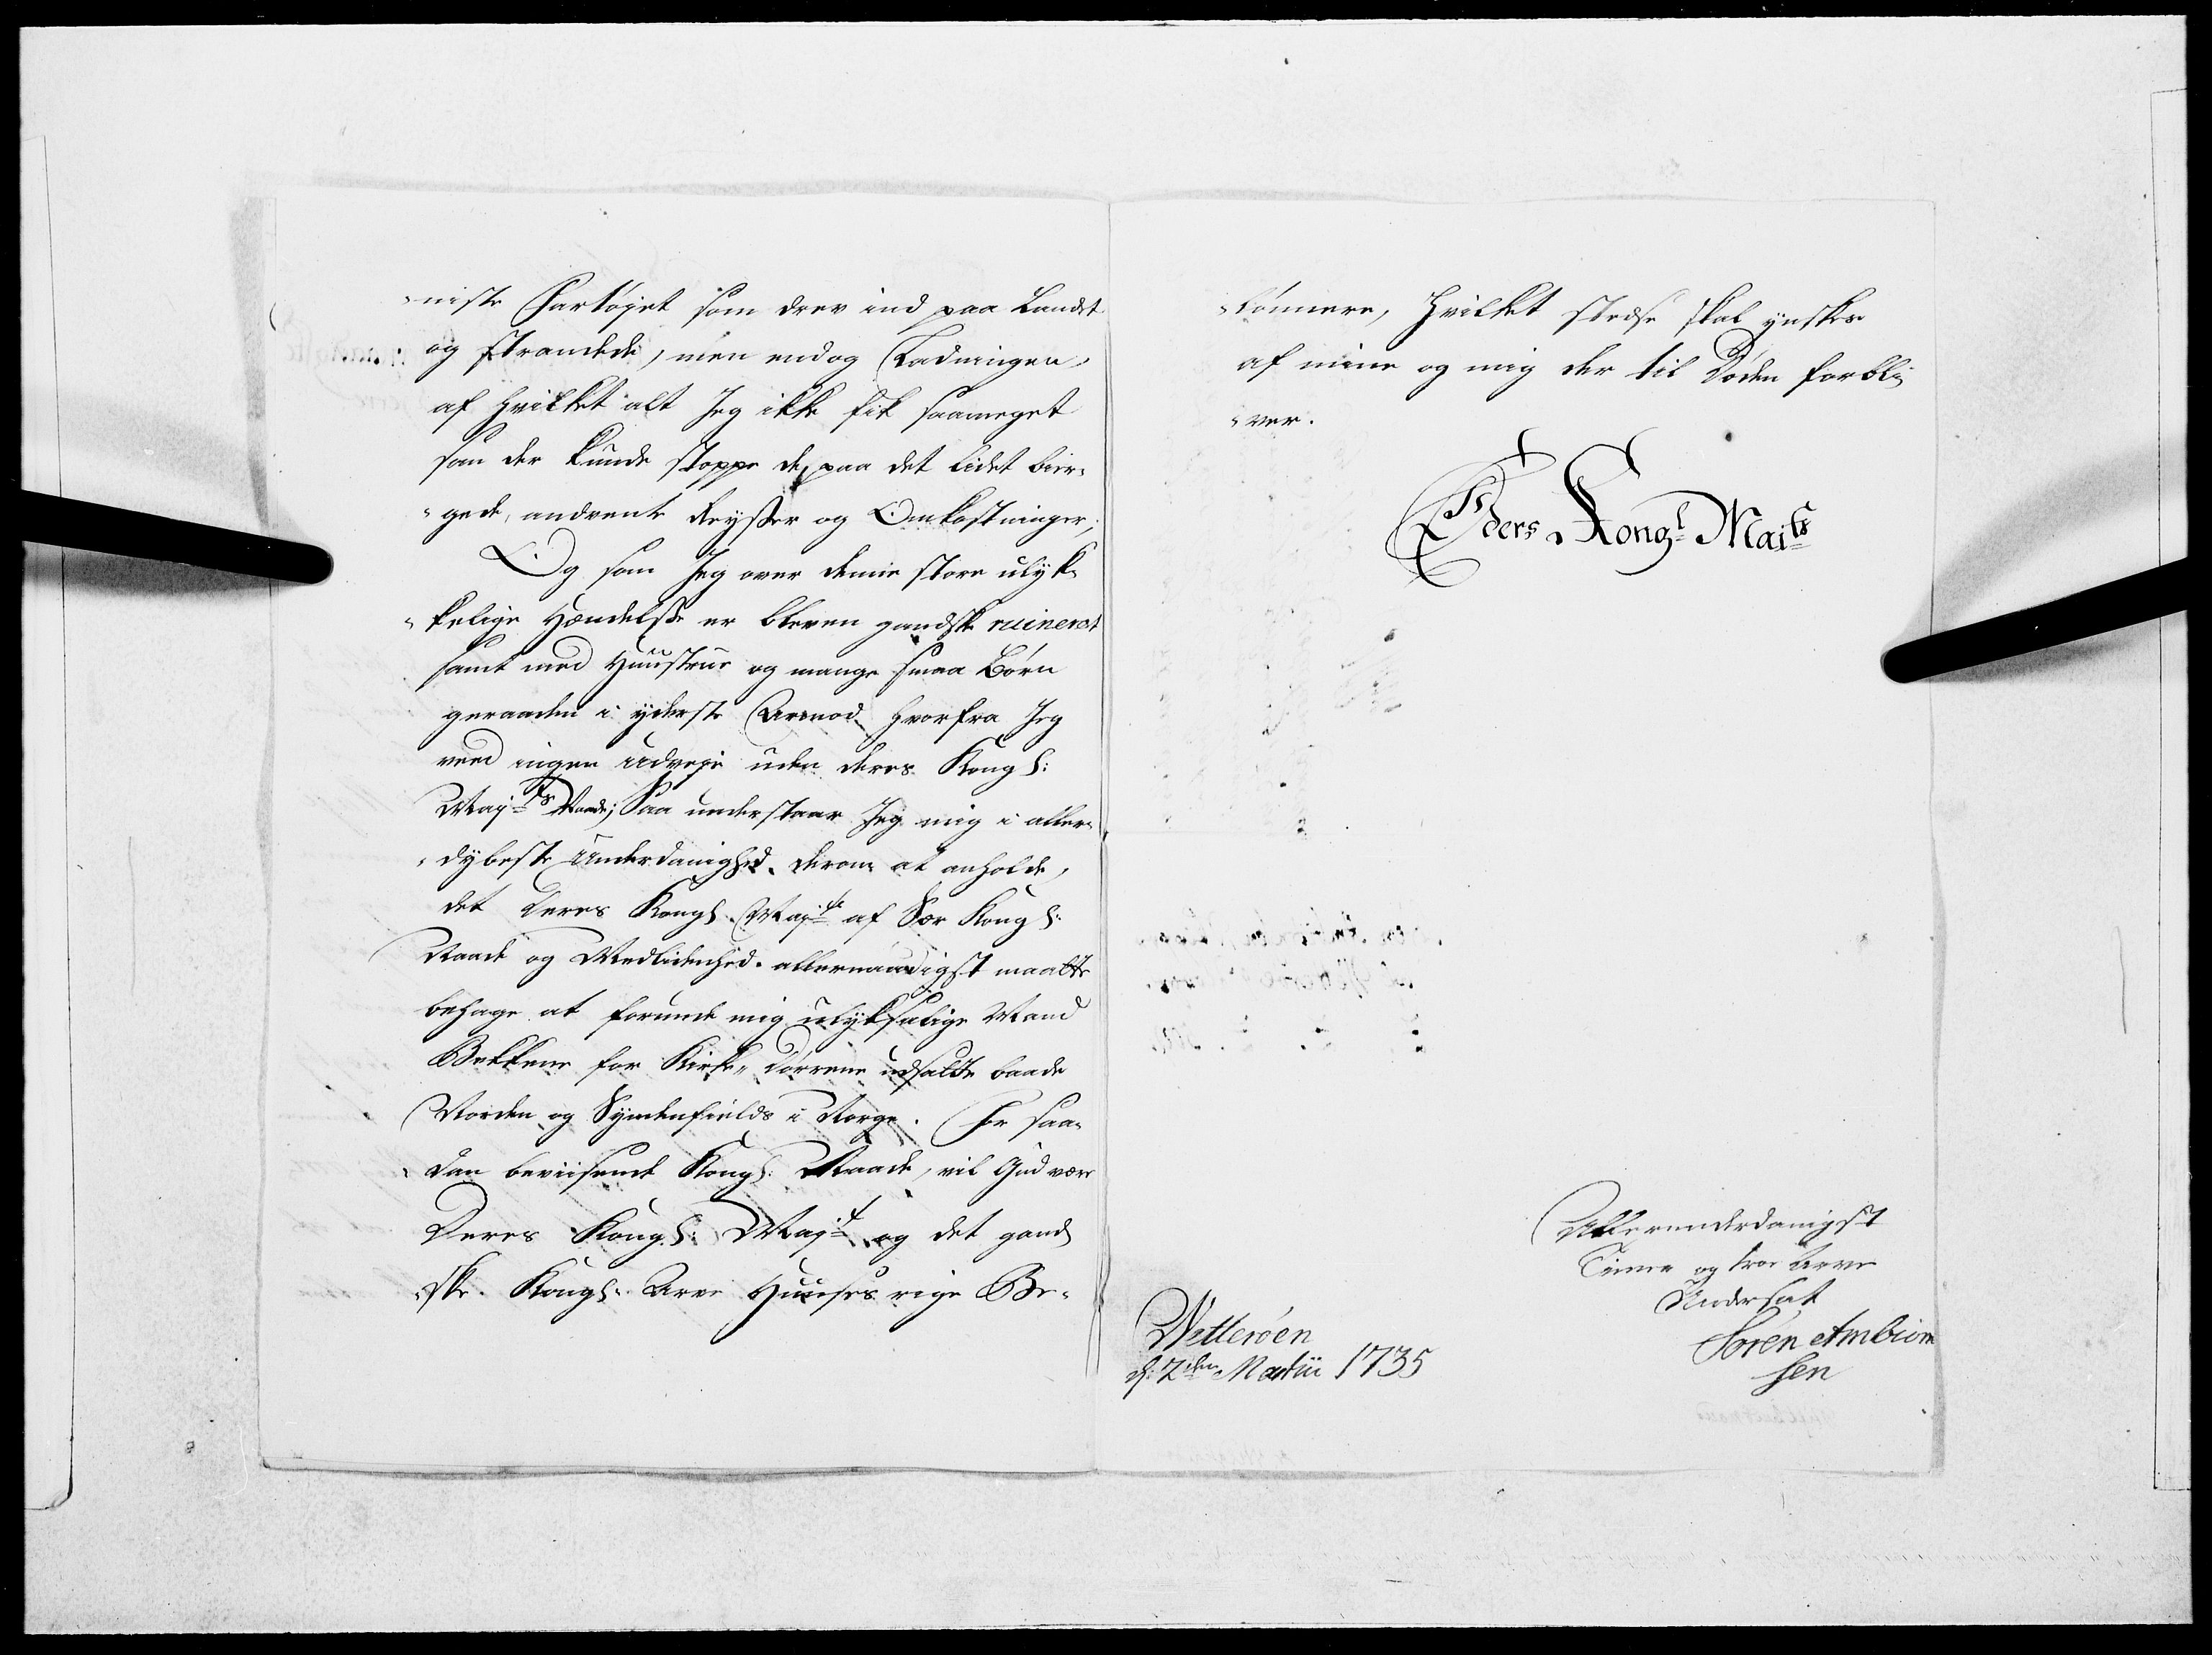 niste Fartöyet som drev ind paa Landet
og Strandede, men endog Ladningen,
af hvilket alt Jeg ikke fik saameget
som der kunde stoppe de paa det lidet bier¬
gede, anvente Reyßer og Omkostninger;
Og som Jeg over denne store ulyk¬
kelige Hændelße er bleven gandske ruineret
samt med Huustrue og mange smaa Börn
geraaden i yderste Armod, hvorfra Jeg
veed ingen udveje uden deres Kongl:
Maj:ts Naade; Saa understaar Jeg mig i aller¬
dybeste Underdanighed, derom at anholde,
det Deres Kongl: Maj:t af Sær Kongl:
Naade og Medlidenhed, allernaadigst maatte
behage at forunde mig ulyksalige Mand
Bekkene for Kirke-Dörrene udsatte baade
Norden og Syndenfields i Norge. For saa¬
dan beviisende Kongl: Naade, vil Gud være
Deres Kongl: Maj:t og det gand¬
ske Kongl: Arve Huuses rige Be¬
lönnere, Hvilket stedse skal ynskes
af mine og mig der til Döden forbli¬
ver.
Eders Kongl Maits
Allerunderdanigst
Tienere og troe Arve
Undersat
Sören Ambiorn
sen
Wetteröen
d: 7den Martii 1735